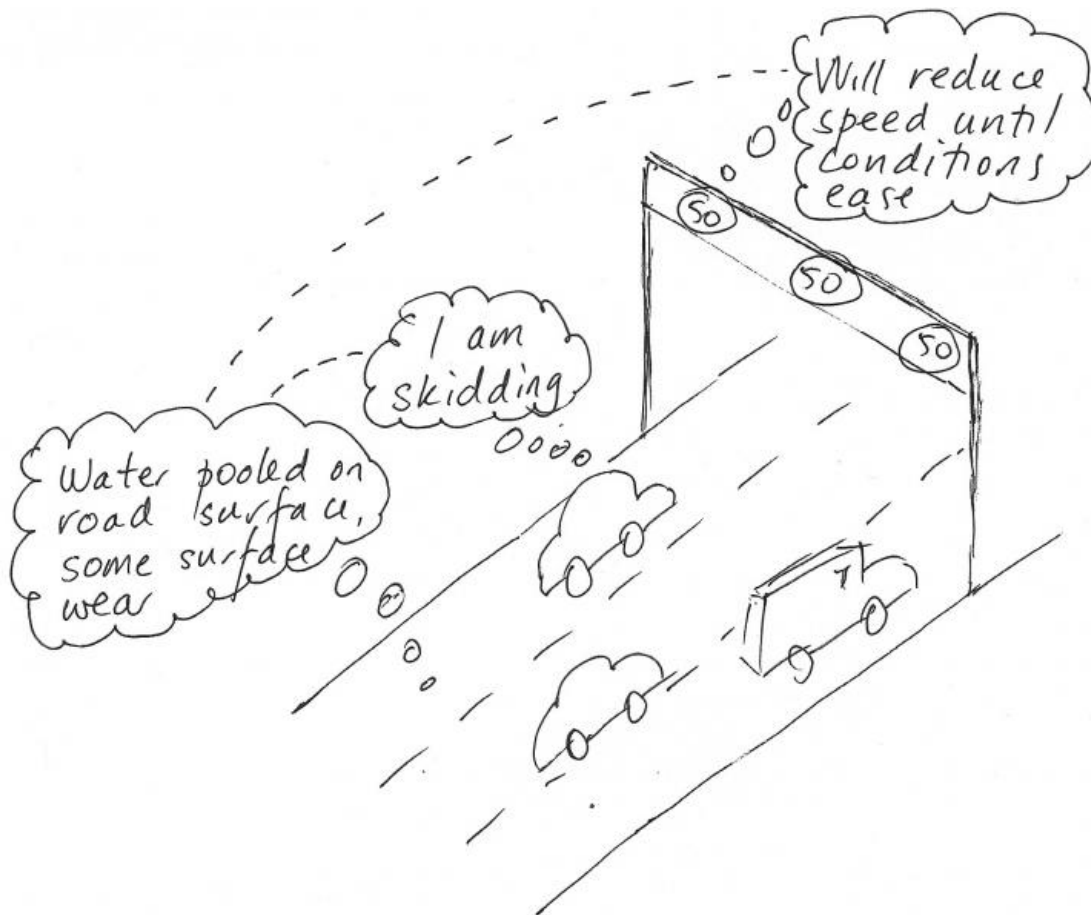 Will reduce
speed until
conditions
ease
50
50
50
I am
skidding
Water pooled on
road surface,
some surface
wear